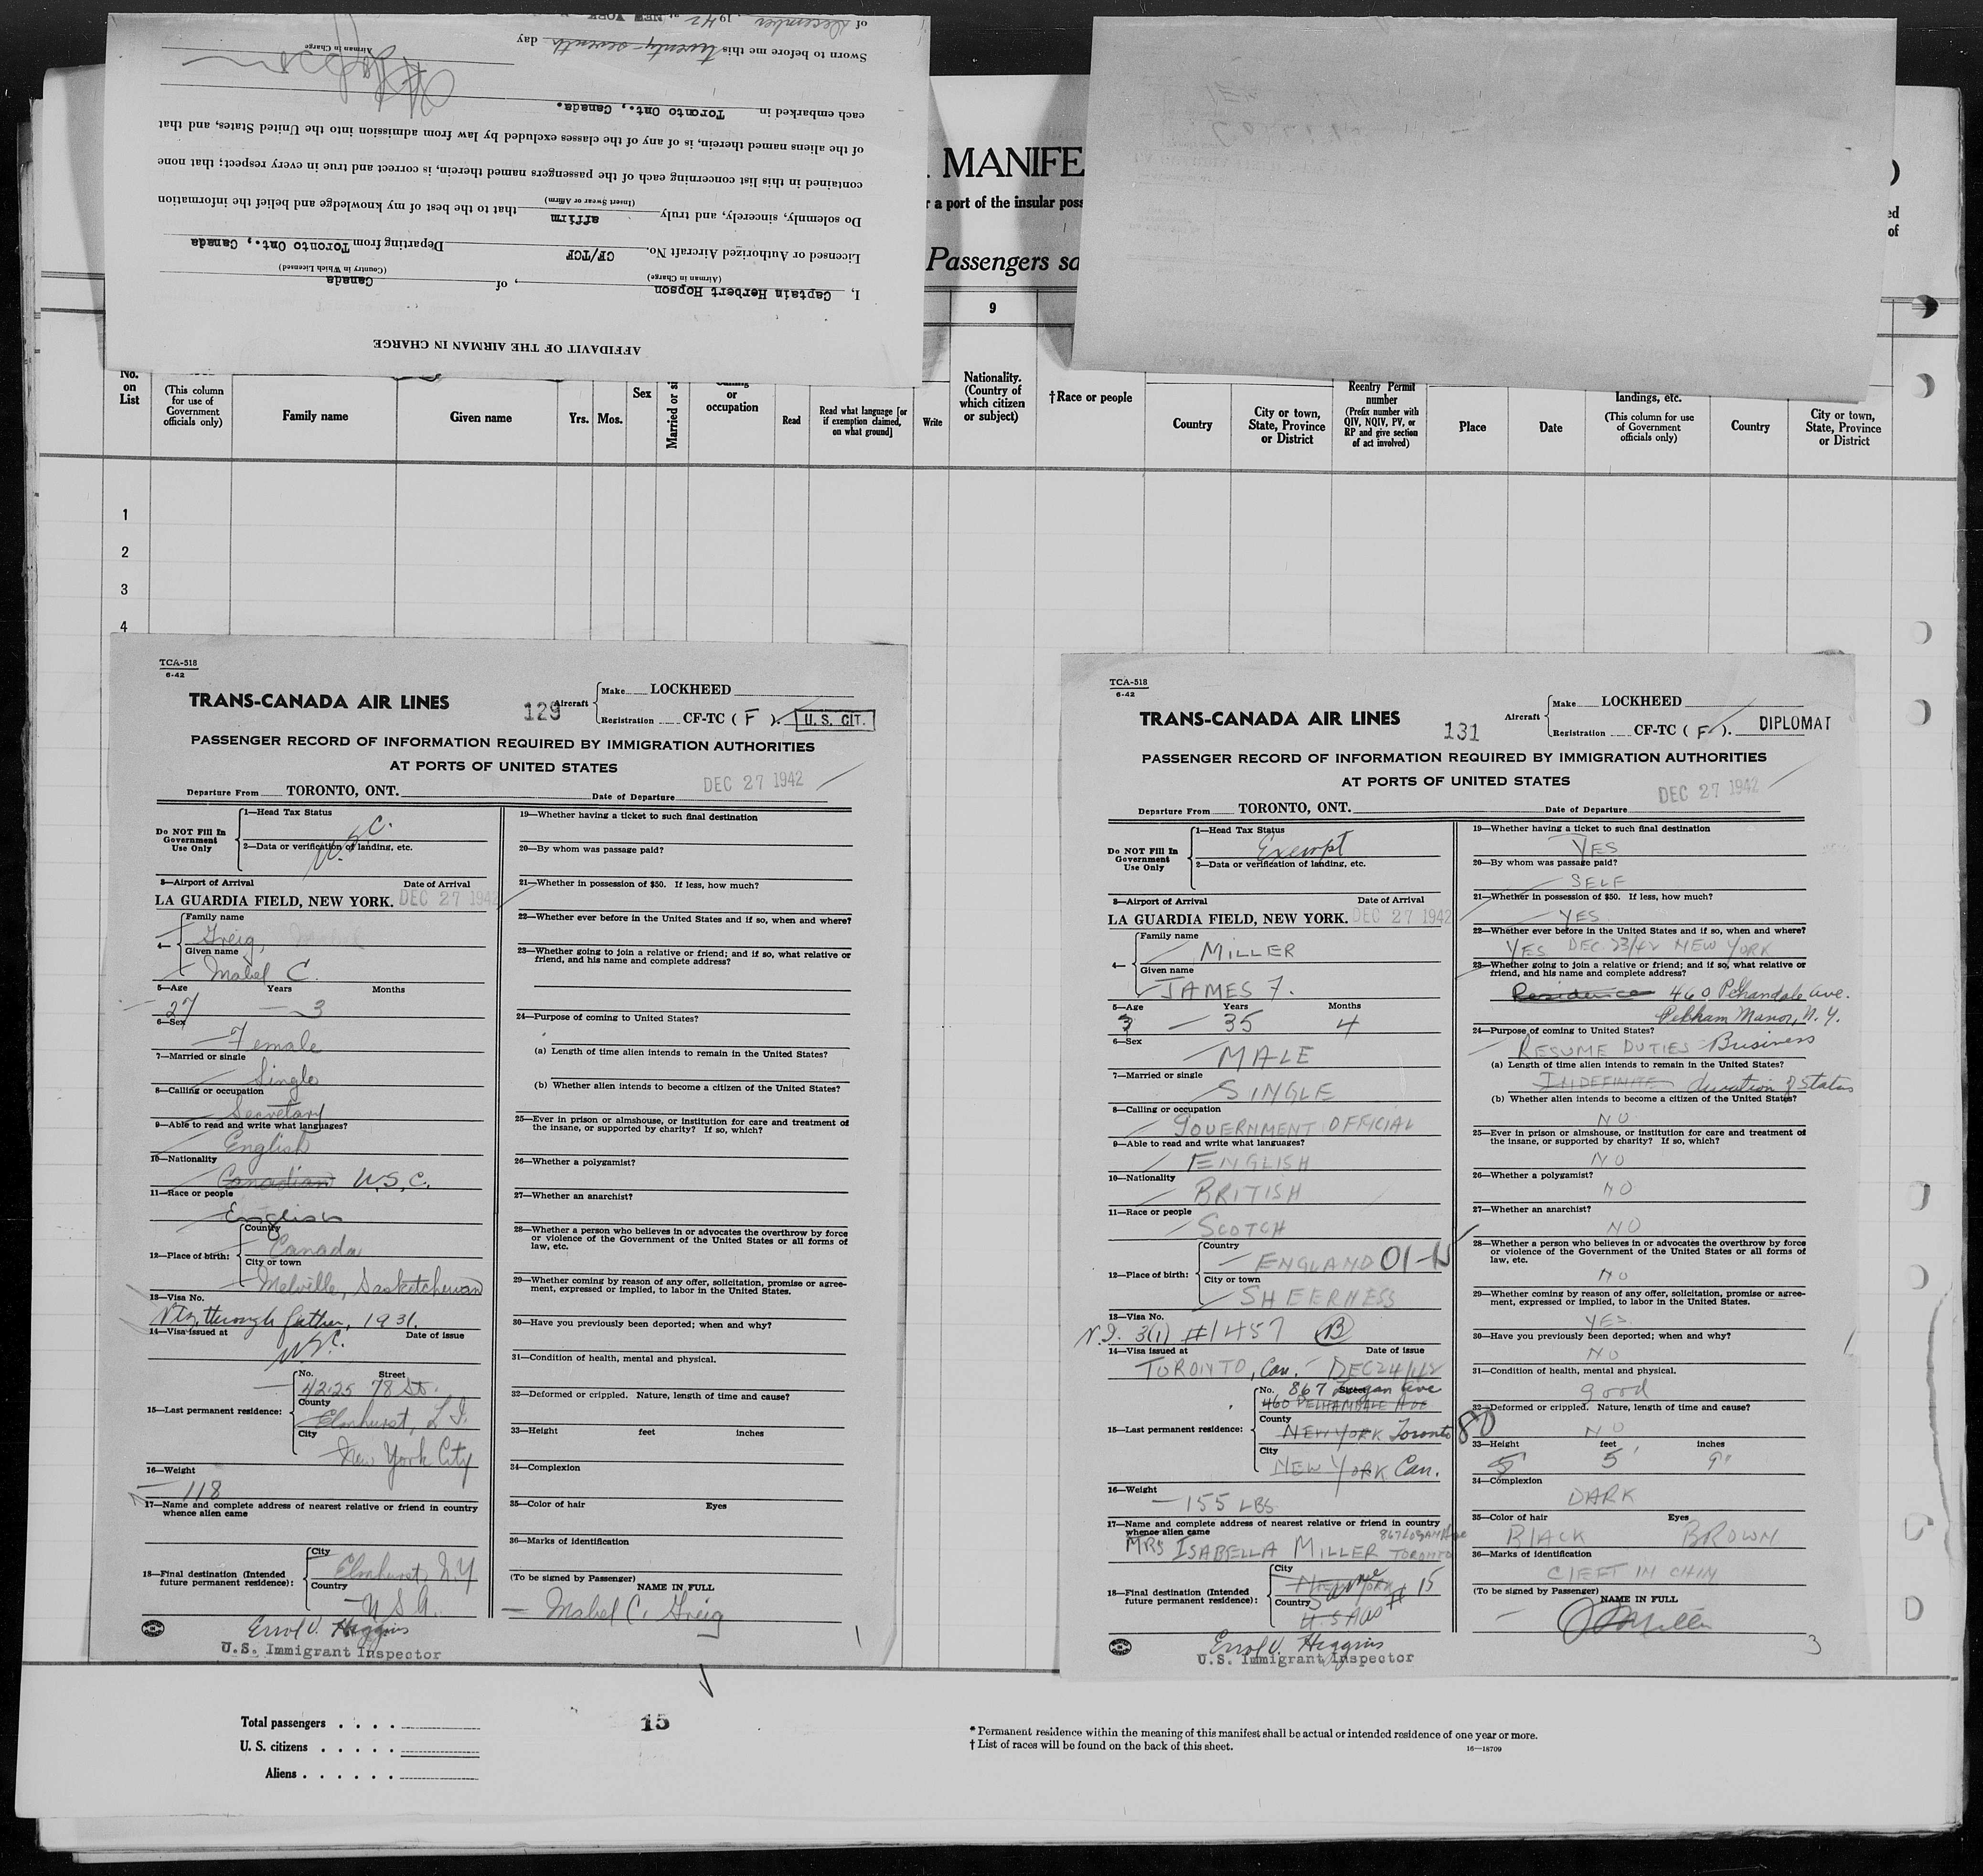 AFFIDAVIT OF THE AIRMAN IN CHARGE
I, Captain Herbert Hopson, of Canada
(Airman in Charge) (Country in Which Licensed)
Licensed or Authorized Aircraft No. CF/TCF Departing from Toronto Ont., Canada
Do solemnly, sincerely, and truly affirm that to the best of my knowledge and belief the information
(Insert Swear or Affirm)
contained in this list concerning each of the passengers named therein, is correct and true in every respect; that none
of the aliens named therein, is of any of the classes excluded by law from admission into the United States, and that
each embarked in Toronto Ont., Canada.
Airman in Charge
Sworn to before me this twenty-seventh day
of December, 1942, at NEW YORK
MANIFE
r a port of the insular poss
Passengers sa
ed
of
9
No.
on
List
(This column
for use of
Government
officials only)
Family name
Given name
Yrs.
Mos.
Sex
Married or s
or
occupation
Read
Read what language [or
if exemption claimed,
on what ground]
Write
Nationality.
(Country of
which citizen
or subject)
†Race or people
Country
City or town,
State, Province
or District
Reentry Permit
number
(Prefix number with
QIV, NQIV, PV, or
RP and give section
of act involved)
Place
Date
landings, etc.
(This column for use
of Government
officials only)
Country
City or town,
State, Province
or District
1
2
3
4
TCA-518
6-42
TRANS-CANADA AIR LINES
129
Aircraft
Make LOCKHEED
Registration CF-TC ( F ).
U. S. CIT.
PASSENGER RECORD OF INFORMATION REQUIRED BY IMMIGRATION AUTHORITIES
AT PORTS OF UNITED STATES
Departure From TORONTO, ONT. Date of Departure DEC 27 1942
Do NOT Fill In
Government
Use Only
1—Head Tax Status
2—Data or verification of landing, etc.
U.S.C.
3—Airport of Arrival Date of Arrival
LA GUARDIA FIELD, NEW YORK. DEC 27 1942
4—
Family name
Greig,
Given name
Mabel C.
5—Age Years Months
27 3
6—Sex
Female
7—Married or single
Single
8—Calling or occupation
Secretary
9—Able to read and write what languages?
English
10—Nationality
Canadian U.S.C.
11—Race or people
English
12—Place of birth:
Country
Canada
City or town
Melville, Saskatchewan
13—Visa No.
Ntz. through father, 1931.
14—Visa issued at Date of issue
15—Last permanent residence:
No. Street
42-25 78 St.
County
Elmhurst, L.I.
City
New York City
16—Weight
118
17—Name and complete address of nearest relative or friend in country
whence alien came
18—Final destination (Intended
future permanent residence):
City
Elmhurst, N.Y
Country
U.S.A.
Errol V. Higgins
U.S. Immigrant Inspector
19—Whether having a ticket to such final destination
20—By whom was passage paid?
21—Whether in possession of $50. If less, how much?
22—Whether ever before in the United States and if so, when and where?
23—Whether going to join a relative or friend; and if so, what relative or
friend, and his name and complete address?
24—Purpose of coming to United States?
(a) Length of time alien intends to remain in the United States?
(b) Whether alien intends to become a citizen of the United States?
25—Ever in prison or almshouse, or institution for care and treatment of
the insane, or supported by charity? If so, which?
26—Whether a polygamist?
27—Whether an anarchist?
28—Whether a person who believes in or advocates the overthrow by force
or violence of the Government of the United States or all forms of
law, etc.
29—Whether coming by reason of any offer, solicitation, promise or agree-
ment, expressed or implied, to labor in the United States.
30—Have you previously been deported; when and why?
31—Condition of health, mental and physical.
32—Deformed or crippled. Nature, length of time and cause?
33—Height feet inches
34—Complexion
35—Color of hair Eyes
36—Marks of identification
(To be signed by Passenger)
NAME IN FULL
Mabel C. Greig
1
TCA-518
6-42
TRANS-CANADA AIR LINES
131
Aircraft
Make LOCKHEED
Registration CF-TC ( F ).
DIPLOMAT
PASSENGER RECORD OF INFORMATION REQUIRED BY IMMIGRATION AUTHORITIES
AT PORTS OF UNITED STATES
Departure From TORONTO, ONT. Date of Departure DEC 27 1942
Do NOT Fill In
Government
Use Only
1—Head Tax Status
Exempt
2—Data or verification of landing, etc.
3—Airport of Arrival Date of Arrival
LA GUARDIA FIELD, NEW YORK. DEC 27 1942
4—
Family name
MILLER
Given name
JAMES F.
5—Age Years Months
3 35 4
6—Sex
MALE
7—Married or single
SINGLE
8—Calling or occupation
GOVERNMENT OFFICIAL
9—Able to read and write what languages?
ENGLISH
10—Nationality
BRITISH
11—Race or people
SCOTCH
12—Place of birth:
Country
ENGLAND
City or town
SHEERNESS
13—Visa No.
3(1) #1457 B
14—Visa issued at Date of issue
TORONTO, Can. DEC 24/42
15—Last permanent residence:
No. Street
867 Logan Ave
460 PELHAMDALE AVE
County
NEW YORK Toronto
City
NEW YORK Can.
16—Weight
155 LBS
17—Name and complete address of nearest relative or friend in country
whence alien came
867 LOGAN Ave
MRS ISABELLA MILLER TORONTO
18—Final destination (Intended
future permanent residence):
City
NEW YORK
Country
Same as # 15
U.S.A
Errol V. Higgins
U.S. Immigrant Inspector
19—Whether having a ticket to such final destination
YES
20—By whom was passage paid?
SELF
21—Whether in possession of $50. If less, how much?
YES
22—Whether ever before in the United States and if so, when and where?
YES DEC 23/42 NEW YORK
23—Whether going to join a relative or friend; and if so, what relative or
friend, and his name and complete address?
Residence 460 Pelhamdale Ave.
Pelham Manor, N.Y.
24—Purpose of coming to United States?
RESUME DUTIES Business
(a) Length of time alien intends to remain in the United States?
INDEFINITE duration of status
(b) Whether alien intends to become a citizen of the United States?
NO
25—Ever in prison or almshouse, or institution for care and treatment of
the insane, or supported by charity? If so, which?
NO
26—Whether a polygamist?
NO
27—Whether an anarchist?
NO
28—Whether a person who believes in or advocates the overthrow by force
or violence of the Government of the United States or all forms of
law, etc.
NO
29—Whether coming by reason of any offer, solicitation, promise or agree-
ment, expressed or implied, to labor in the United States.
YES
30—Have you previously been deported; when and why?
NO
31—Condition of health, mental and physical.
good
32—Deformed or crippled. Nature, length of time and cause?
NO
33—Height feet inches
5' 9"
34—Complexion
DARK
35—Color of hair Eyes
BLACK BROWN
36—Marks of identification
CLEFT IN CHIN
(To be signed by Passenger)
NAME IN FULL
3
Total passengers . . . .
U. S. citizens . . . . .
Aliens . . . . . .
15
* Permanent residence within the meaning of this manifest shall be actual or intended residence of one year or more.
† List of races will be found on the back of this sheet.
16—18709